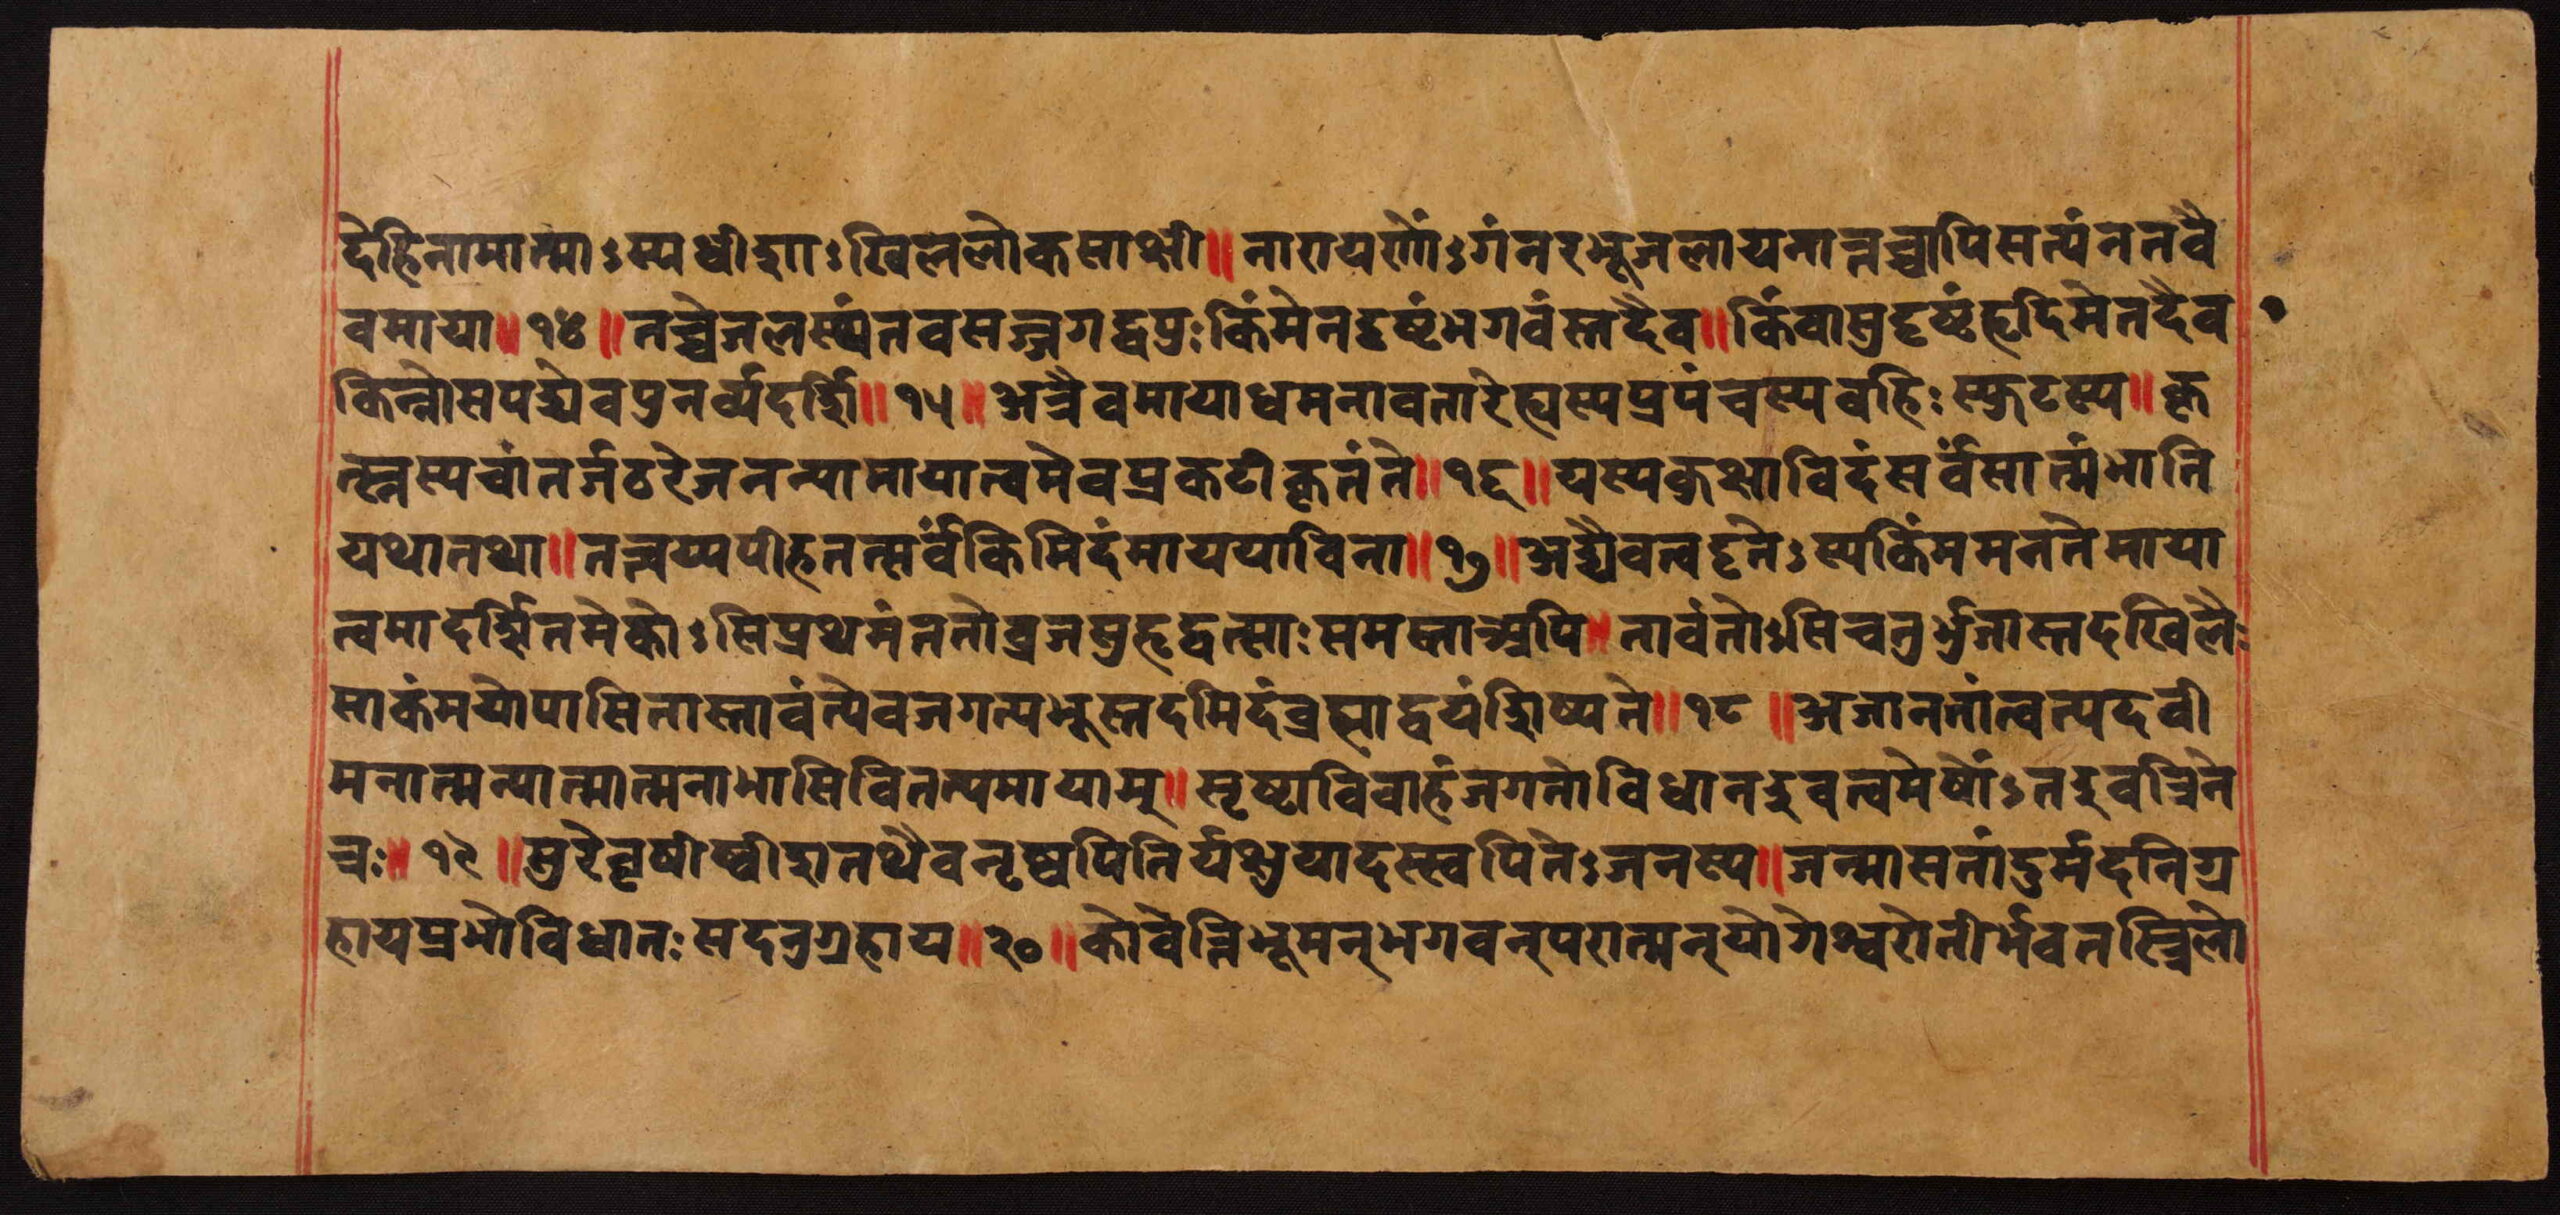 देहिनामात्माऽस्यधीशाऽखिललोकसाक्षी॥नारायणोंऽगंनरभूजलायनात्तच्चापिसत्यंनतवै
वमाया॥१४॥तच्चेजलस्थंतवसज्जगद्वपुःकिंमेनदृष्टंभगवंस्तदैव॥किंवासुदृष्टंहृदिमेतदैव १
किन्नोसपद्येवपुनर्व्यदर्शि॥१५॥अत्रैवमायाधमनावतारेह्यस्यप्रपंचस्यवहिःस्फुटस्य॥कृ
त्स्नस्यचांतर्जठरेजनन्यामायात्वमेवप्रकटीकृतंते॥१६॥यस्यकुक्षाविदंसर्वंसात्मंभाति
यथातथा॥तत्त्वय्यपीहतत्सर्वंकिमिदंमाययाविना॥१७॥अद्यैवत्वदृतेऽस्यकिंममनतेमाया
त्वमादर्शितमेकोऽसिप्रथमंततोव्रजसुहृद्वत्साःसमस्ताअपि॥तावंतोऽसिचतुर्भुजास्तदखिलैः
साकंमयोपासितास्तावंत्येवजगत्यभूस्तदमिदंब्रह्माद्वयंशिष्यते॥१८॥अजानतांत्वत्पदवी
मनात्मन्यात्मात्मनाभासिवितत्यमायाम्॥सृष्टाविवाहंजगतोविधानइवत्वमेषोंऽतइवत्रिने
त्रः॥१९॥सुरेवृषीष्वीशतथैवनृष्वपितिर्यक्षुयादस्स्वपितेऽजनस्य॥जन्मासतांदुर्मदनिग्र
हायप्रभोविधातःसदनुग्रहाय॥२०॥कोवेत्तिभूमन्भगवन्परात्मन्योगेश्वरोतीर्भवतस्त्रिलो